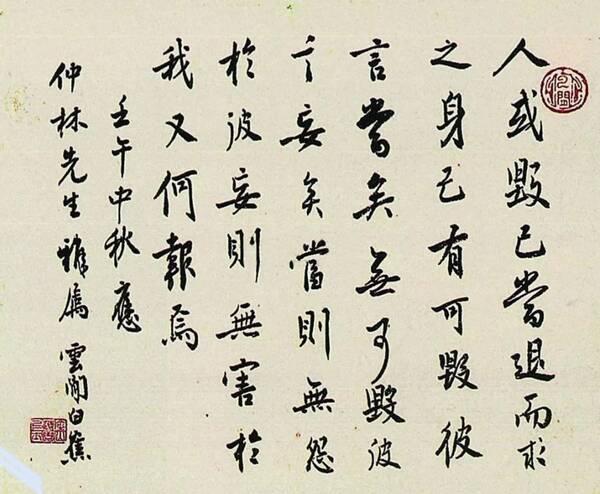 人或毀己當退而求
之身己有可毀彼
言當矣無可毀彼
言妄矣當則無怨
於彼妄則無害於
我又何報焉
壬午中秋應
仲林先生雅屬雲間白蕉